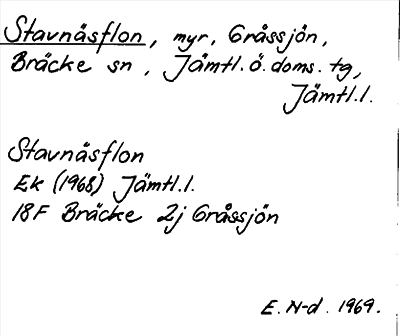 Stavnäsflon, myr, Gråssjön,
Bräcke sn, Jämtl.ö.doms.tg,
Jämtl.l.
Stavnäsflon
Ek (1968) Jämtl.l.
18F Bräcke 2j Gråssjön
E. N-d. 1969.